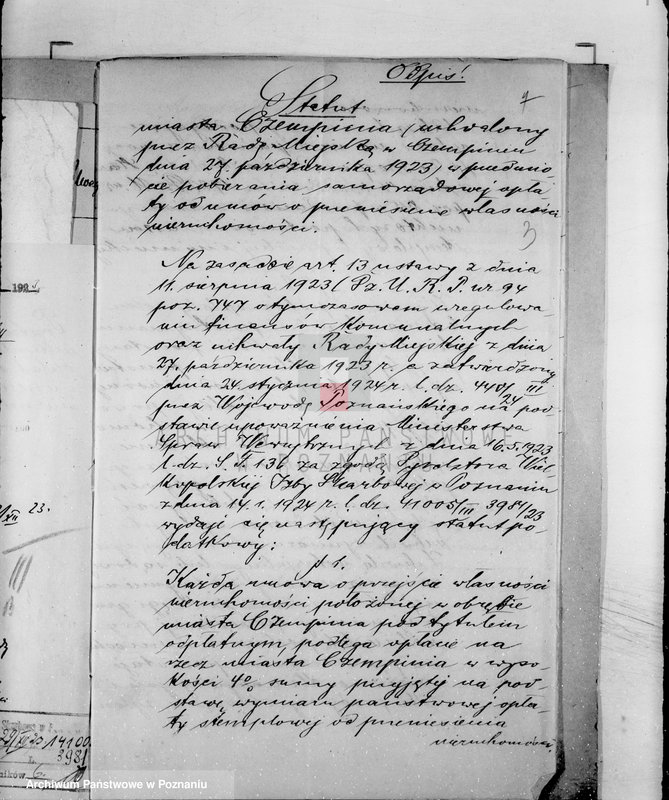 Odpis!
7
Statut
miasta Czempinia (uchwalony
przez Radę Miejską w Czempiniu
dnia 27. października 1923) w przedmio-
cie pobierania samorządowej opła-
ty od umów o przeniesienie własności
nieruchomości.
3
Na zasadzie art. 13 ustawy z dnia
11. sierpnia 1923 (Dz. U. R. P. nr 94
poz. 747 o tymczasowem uregulowa-
niu finansów komunalnych
oraz uchwały Rady Miejskiej z dnia
27. października 1923 r. a zatwierdzony
dnia 24. stycznia 1924 r. l. dz. 440/24 III
przez Wojewodę Poznańskiego na pod-
stawie upoważnienia Ministerstwa
Spraw Wewnętrznych z dnia 16.5.1923
l. dz. S. F. 136 za zgodą Dyrektora Wiel-
kopolskiej Izby Skarbowej w Poznaniu
z dnia 14.1.1924 r. l. dz. 41005/III 3981/23
wydaje się następujący statut po-
datkowy:
§ 1.
Każda umowa o przejście własności
nieruchomości położonej w obrębie
miasta Czempinia pod tytułem
odpłatnym, podlega opłacie na
rzecz miasta Czempinia w wyso-
kości 4% sumy przyjętej na pod-
stawę wymiaru państwowej opła-
ty stemplowej od przeniesienia
nieruchomości.
192
23.
XII
III
14100
3981
L.
ników 6.
ARCHIWUM PAŃSTWOWE
W POZNANIU
Archiwum Państwowe w Poznaniu